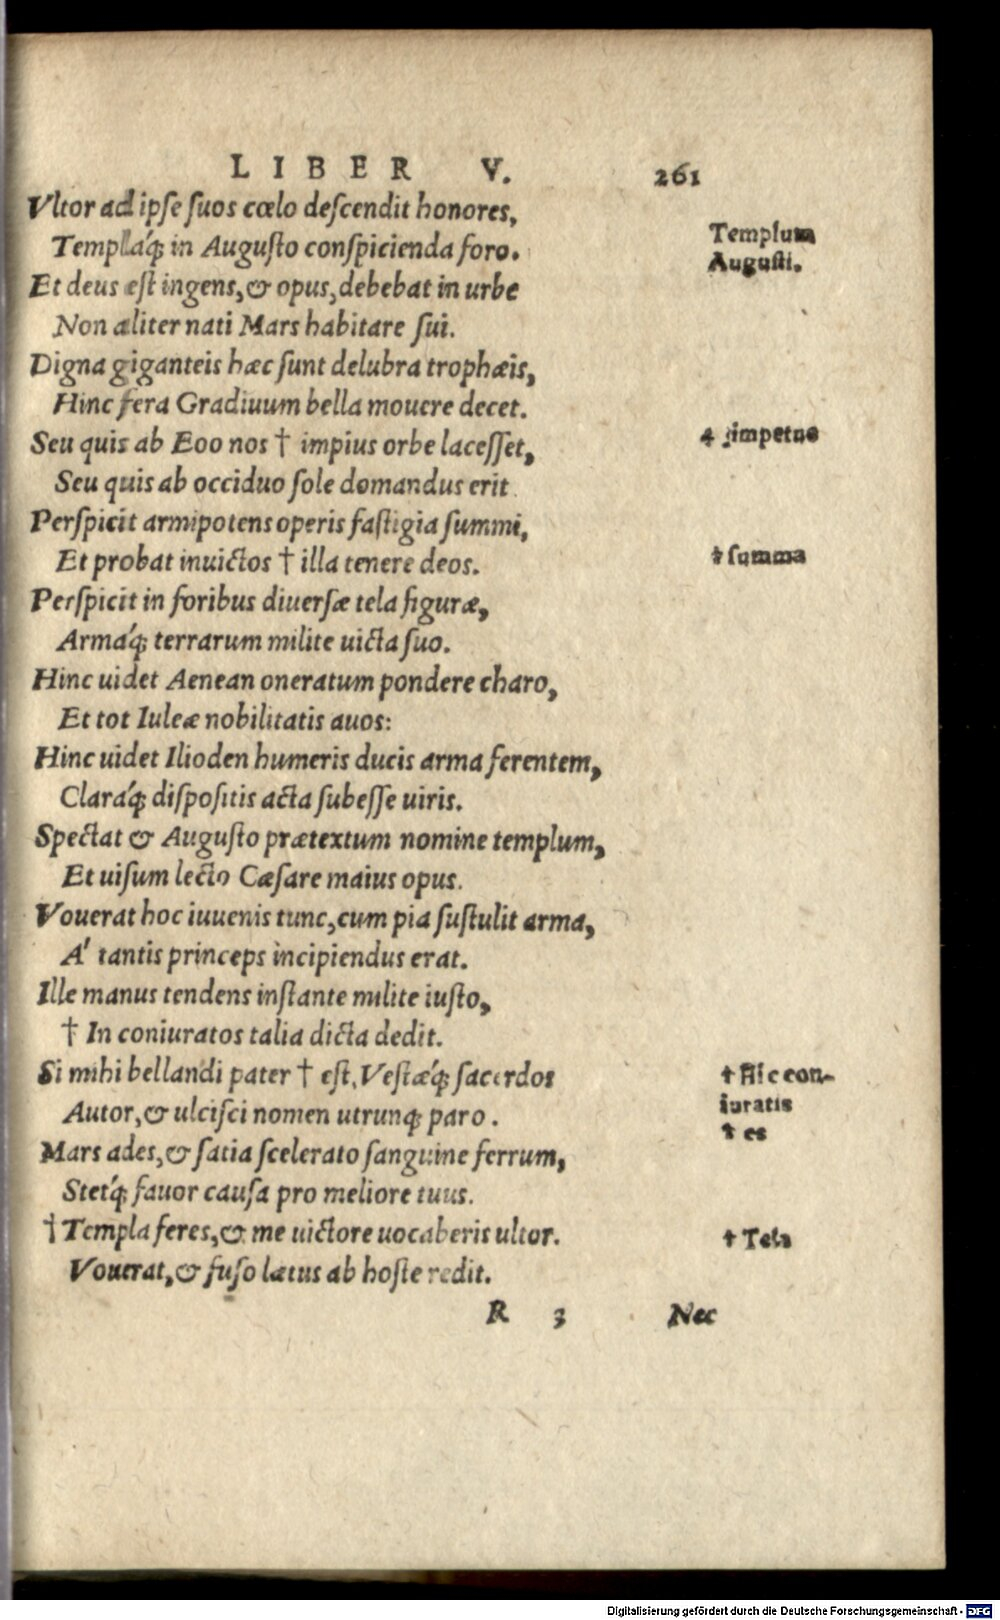 LIBER V. 261
Vltor ad ipse suos cœlo descendit honores,
Templaq́; in Augusto conspicienda foro.
Templum
Augusti.
Et deus est ingens, & opus, debebat in urbe
Non aliter nati Mars habitare sui.
Digna giganteis hæc sunt delubra trophæis,
Hinc fera Gradiuum bella mouere decet.
Seu quis ab Eoo nos † impius orbe lacesset,
† impetus
Seu quis ab occiduo sole domandus erit.
Perspicit armipotens operis fastigia summi,
Et probat inuictos † illa tenere deos.
† summa
Perspicit in foribus diuersæ tela figuræ,
Armaq́; terrarum milite uicta suo.
Hinc uidet Aenean oneratum pondere charo,
Et tot Iuleæ nobilitatis auos:
Hinc uidet Ilioden humeris ducis arma ferentem,
Claraq́; dispositis acta subesse uiris.
Spectat & Augusto prætextum nomine templum,
Et uisum lecto Cæsare maius opus.
Vouerat hoc iuuenis tunc, cum pia sustulit arma,
A' tantis princeps incipiendus erat.
Ille manus tendens instante milite iusto,
† In coniuratos talia dicta dedit.
Si mihi bellandi pater † est, Vestæq́; sacerdos
† Hic con-
iuratis
Autor, & ulcisci nomen utrunq; paro.
† es
Mars ades, & satia scelerato sanguine ferrum,
Stetq́; fauor causa pro meliore tuus.
† Templa feres, & me uictore uocaberis ultor.
† Tela
Vouerat, & fuso lætus ab hoste redit.
R 3 Nec
Digitalisierung gefördert durch die Deutsche Forschungsgemeinschaft - DFG